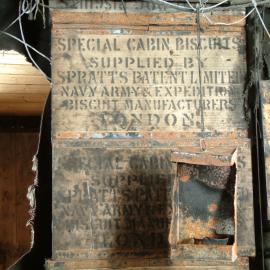 SPECIAL CABIN BISCUITS
SUPPLIED BY
SPRATT'S PATENT LIMITED
NAVY ARMY & EXPEDITION
BISCUIT MANUFACTURERS
LONDON
SPECIAL CABIN BISCUITS
SUPPLIE
SPRATT'S PA
NAVY ARMY & E
BISCUIT MAN
LOND